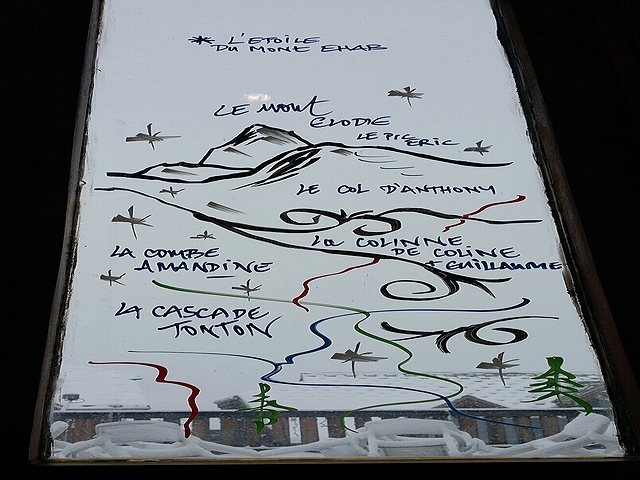 * L'ETOILE
DU MONT EHAB
LE MONT
ELODIE
LE PIC ERIC
LE COL D'ANTHONY
LA COLINNE
DE COLINE
+ GUILLAUME
LA COMBE
AMANDINE
LA CASCADE
TONTON